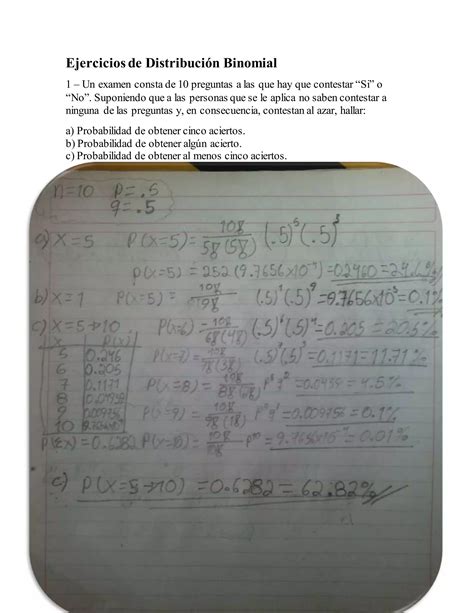 Ejercicios de Distribución Binomial
1 – Un examen consta de 10 preguntas a las que hay que contestar “Si” o
“No”. Suponiendo que a las personas que se le aplica no saben contestar a
ninguna de las preguntas y, en consecuencia, contestan al azar, hallar:
a) Probabilidad de obtener cinco aciertos.
b) Probabilidad de obtener algún acierto.
c) Probabilidad de obtener al menos cinco aciertos.
n=10 p=.5
q=.5
a) X=5 P(X=5)= 10! / 5!(5!) (.5)⁵(.5)
P(X=5)=252(9.7656x10⁻⁴)=0.2460=
b) X=1 P(X=5)= (.5)¹(.5)⁹=9.7656x10⁻³=0.1%
c) X=5→10 P(X=6)= 10! / 6!(4!) (.5)⁶(.5)⁴=0.205=20.5%
x P(x)
5 0.246 P(X=7)= 10! / 7!(3!) =0.1171=11.71%
6 0.205
7 0.1171 P(X=8)= 10! / 8!(2!) =4.5%
8
9 0.009756 P(X=9)= 10! / 9!(1!) =0.009756=0.1%
10 P(X=10)= P¹⁰=9.7656x10⁻⁴=0.01%
=0.6282
c) P(X=5→10)=0.6282=62.82%